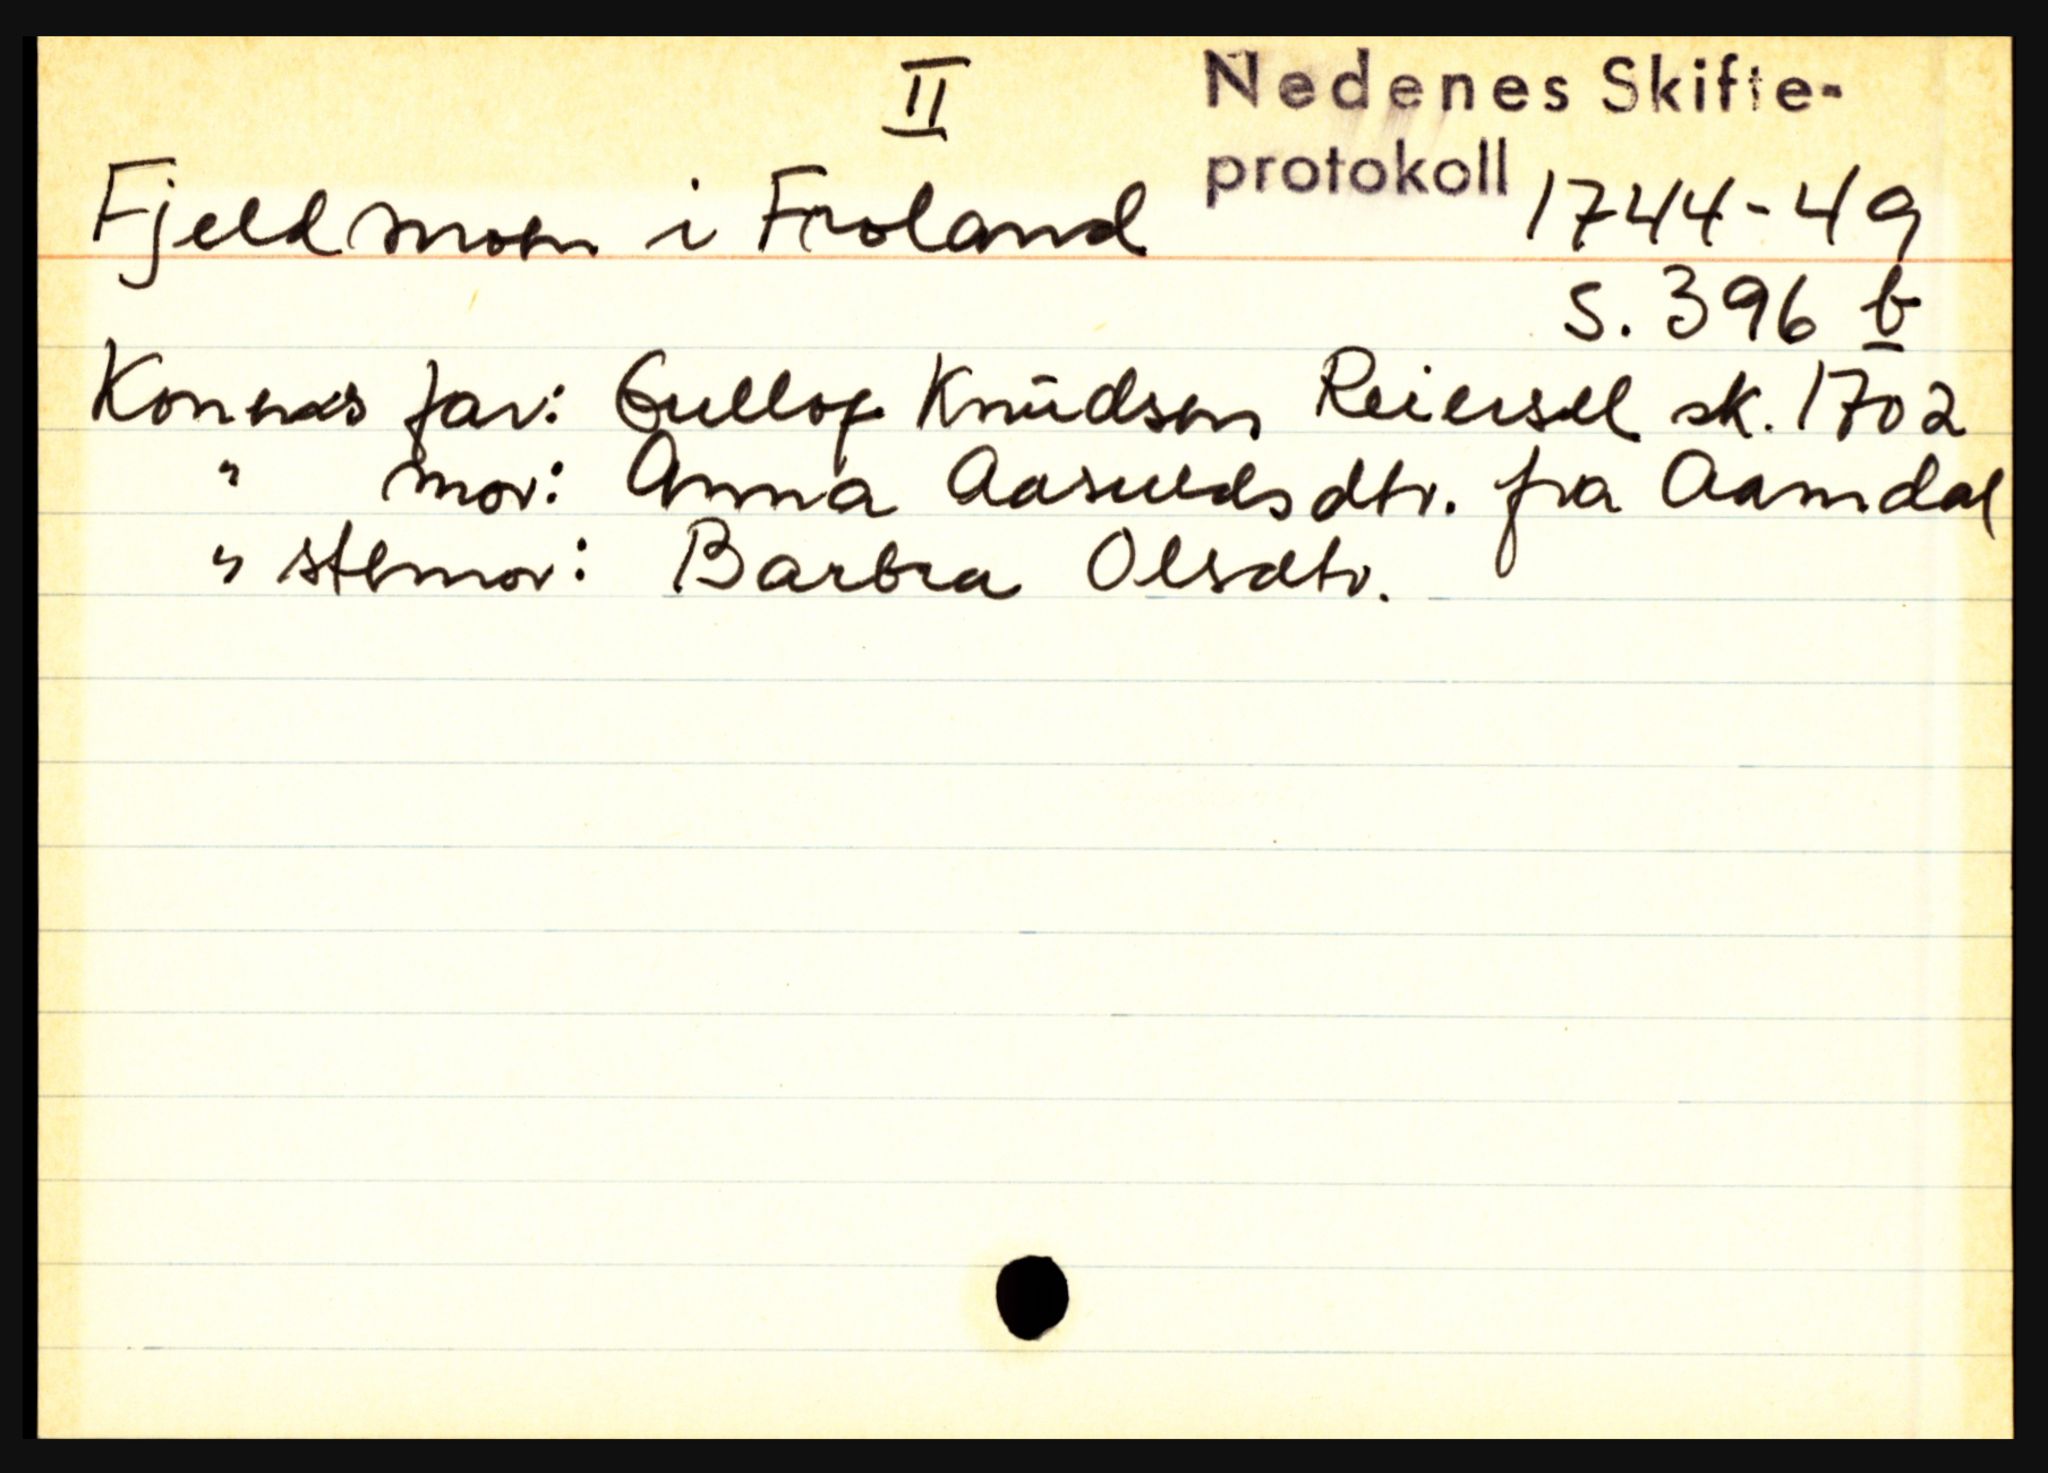 II
Nedenes Skifte-
protokoll 1744-49
Fjeldmoen i Froland
s. 396 b
Konens far: Gullof Knudsen Reiersøl sk. 1702
" mor: Anna Aasuldsdtr. fra Aamdal
" stemor: Barbra Olsdtr.